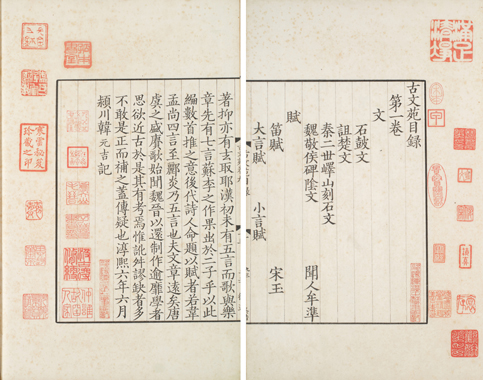 古文苑目錄
第一卷
文
石鼓文
詛楚文
秦二世嶧山刻石文
魏敬侯碑陰文 聞人牟準
賦
笛賦 宋玉
大言賦 小言賦
著抑亦有玄取耶漢初未有五言而歌與樂
章先有七言蘇李之作果出於二子乎以此
編數首推之意後代詩人命題以賦者若韋
孟尚四言至酈炎乃五言也夫文章遠矣唐
虞之盛賡歌始聞魏晉以還制作逾靡學者
思欲近古於是其有考焉惟訛舛謬缺者多
不敢是正而補之蓋傳疑也淳熙六年六月
潁川韓元吉記
寒雲秘笈
珍藏之印